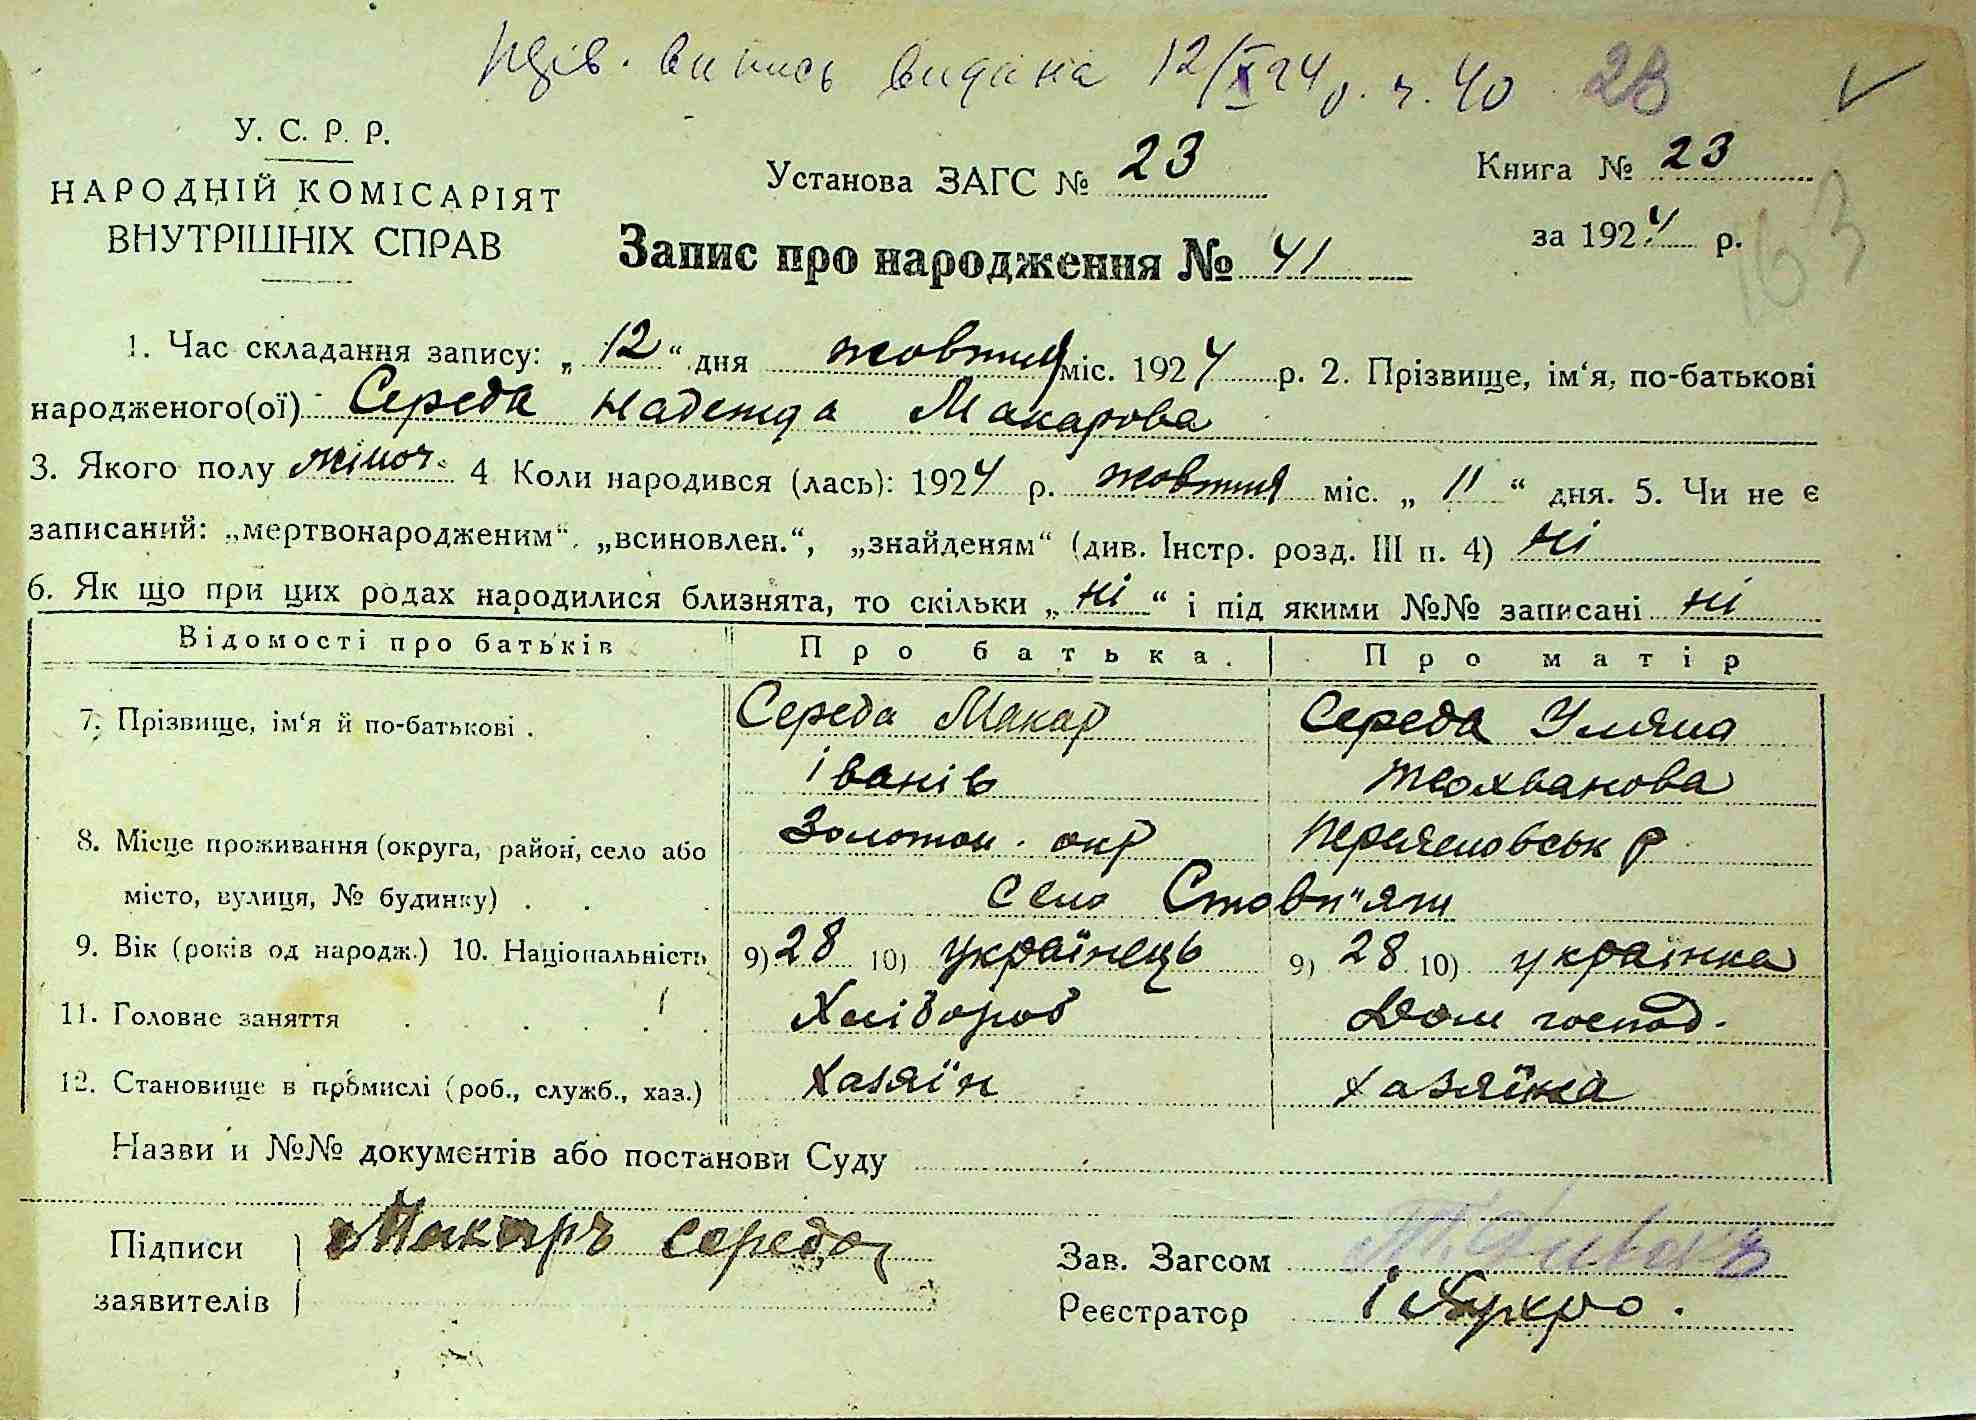 випись видана 12/X 24 р. ч. 40 23
У. С. Р. Р.
НАРОДНІЙ КОМІСАРІЯТ
ВНУТРІШНІХ СПРАВ
Установа ЗАГС № 23
Книга № 23
за 1924 р.
163
Запис про народження № 41
1. Час складання запису: „12“ дня жовтня міс. 1924 р. 2. Прізвище, ім‘я, по-батькові
народженого(ої) Середа Надежда Макарова
3. Якого полу жіноч. 4 Коли народився (лась): 1924 р. жовтня міс. „11“ дня. 5. Чи не є
записаний: „мертвонародженим“, „всиновлен.“, „знайденям“ (див. Інстр. розд. III п. 4) ні
6. Як що при цих родах народилися близнята, то скільки „ні“ і під якими №№ записані ні
Відомості про батьків Про батька. Про матір
7. Прізвище, ім‘я й по-батькові . Середа Макар Середа Уляна
Іванів Теохванова
8. Місце проживання (округа, район, село або Золотон. окр Переяславськ р
місто, вулиця, № будинку) . . . село Стовп"яги
9. Вік (років од народж.) 10. Національність 9) 28 10) українець 9) 28 10) українка
11. Головне заняття . . . . . . Хлібороб Дом господ.
12. Становище в промислі (роб., служб., хаз.) хазяїн хазяїка
Назви и №№ документів або постанови Суду
Підписи Макаръ Середа
заявителів
Зав. Загсом
Реєстратор